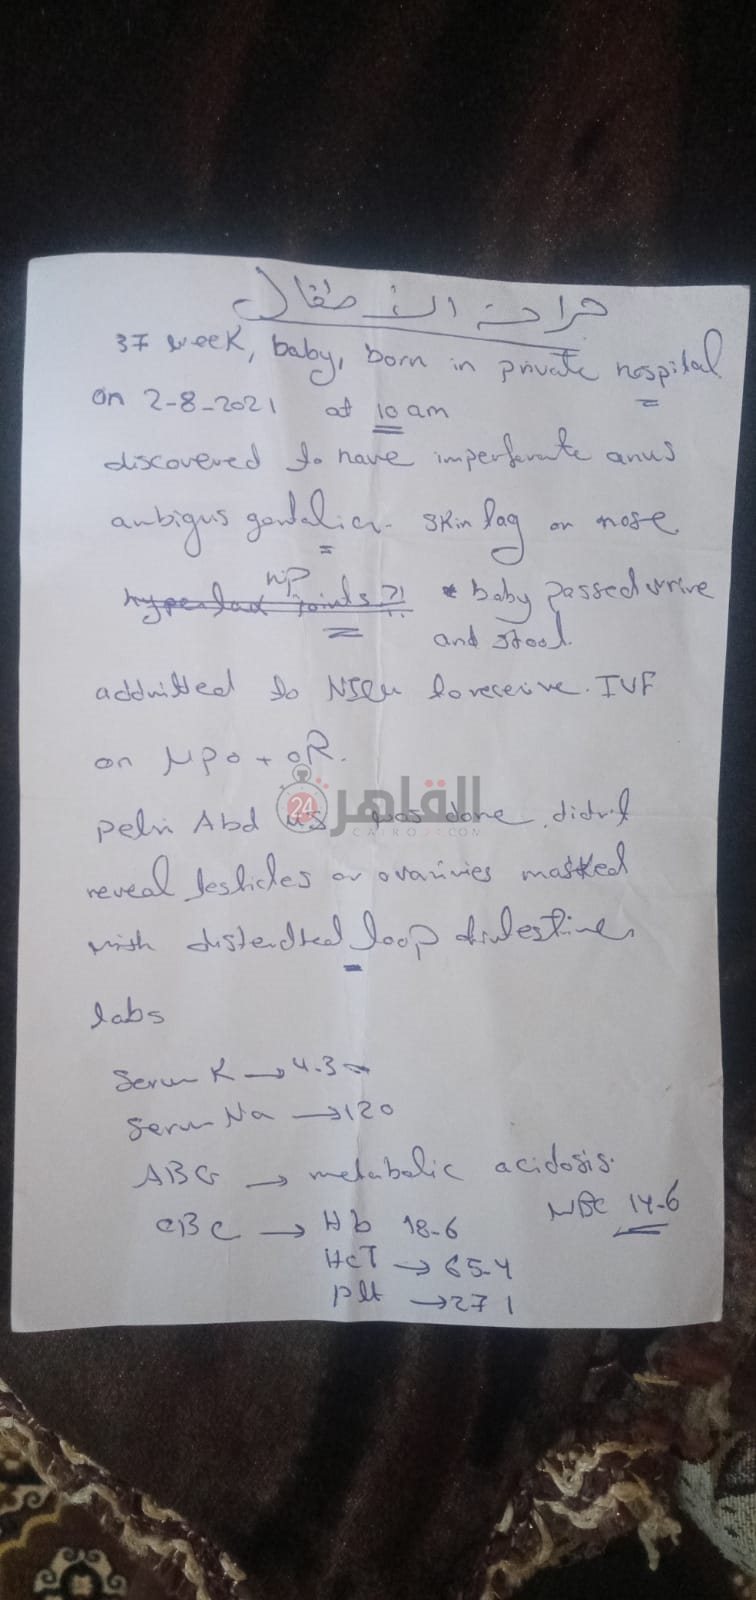 جراحة الأطفال
37 week, baby, born in private hospital
on 2-8-2021 at 10 am
discovered to have imperforate anus
ambigus genitalia. skin tag on nose
hyperlax joints ?! * baby passed urine
and stool.
addmitted to NICU to receive. IVF
on NPO + oR.
pelvi Abd us was done, didn't
reveal testicles or ovarivies masked
with distendted loop
labs
Serum K → 4.3
Serum Na → 120
ABG → metabolic acidosis.
CBC → Hb 18-6 WBC 14-6
HcT → 65-4
plt → 271
القاهرة 24
CAIRO24.COM